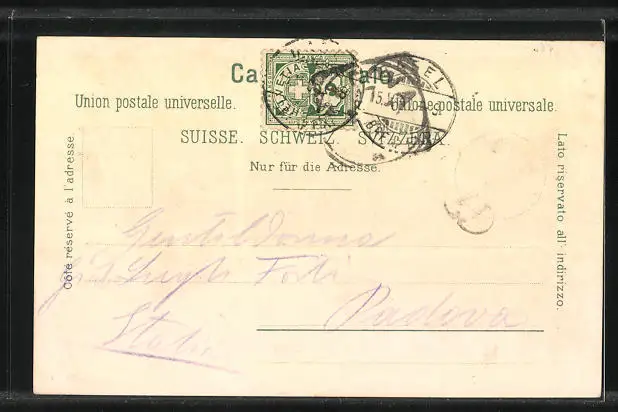 Union postale universelle. Unione postale universale.
SUISSE. SCHWEIZ. SVIZZERA.
Nur für die Adresse.
Côté réservé à l'adresse
Lato riservato all' indirizzo.
Gentildonna
Luigia Forti
Padova
Italia